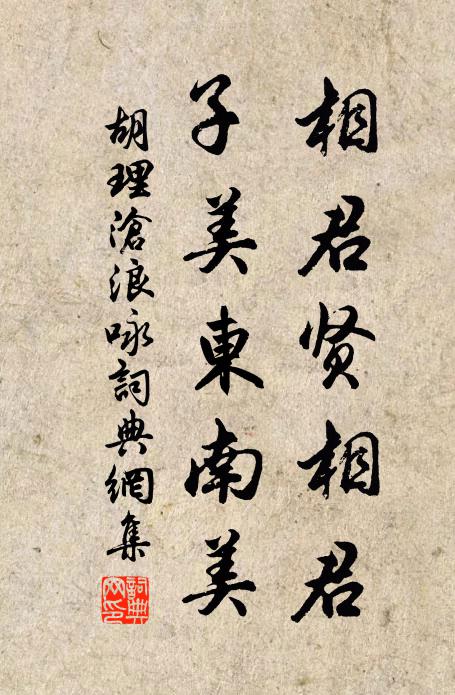 相君贤相君
子美東南美
胡理滄浪咏詞典網集
詞典網印